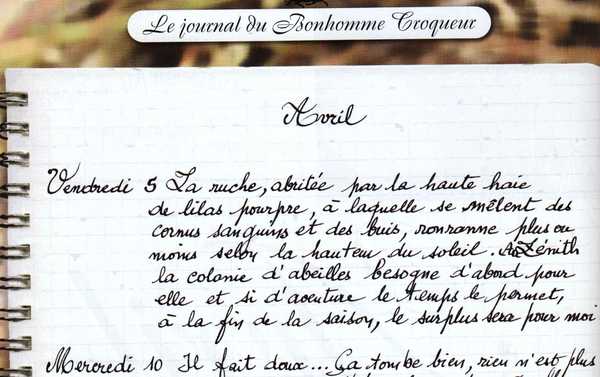 Le journal du Bonhomme Croqueur
Avril
Vendredi 5 La ruche, abritée par la haute haie
de lilas pourpre, à laquelle se mêlent des
cornus sanguins et des buis, ronronne plus ou
moins selon la hauteur du soleil. A Zénith
la colonie d'abeilles besogne d'abord pour
elle et si d'aventure le temps le permet,
à la fin de la saison, le surplus sera pour moi
Mercredi 10 Il fait doux... Ça tombe bien, rien n'est plus